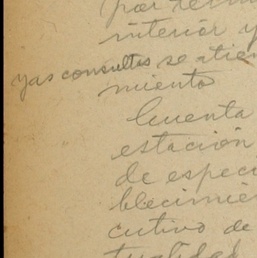 por
interior y
yas consultas se atien
miento
Cuenta
estación
de especi
blecimie
cutivo de
tualidad